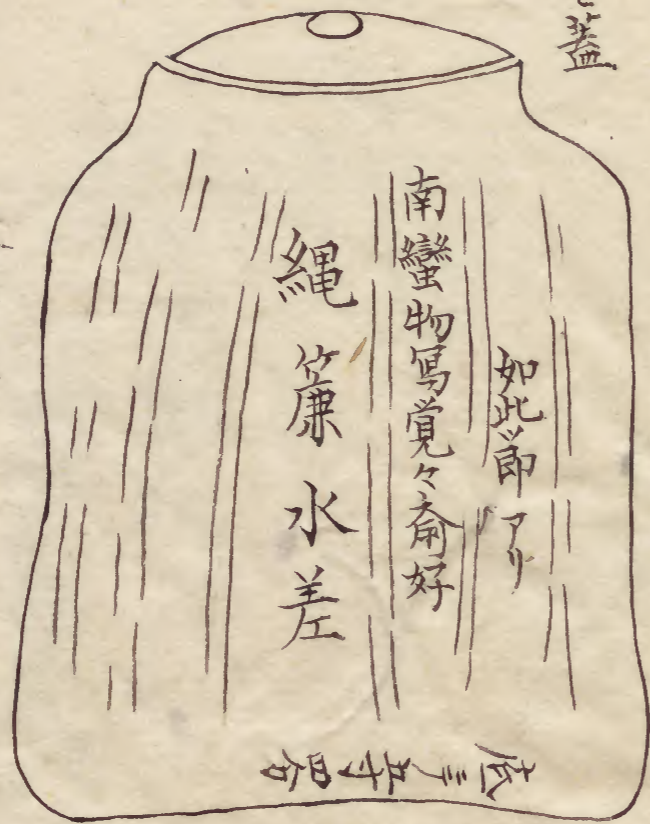 蓋
如此節アリ
南蠻物写覚々斎好
縄簾水差
五寸四分